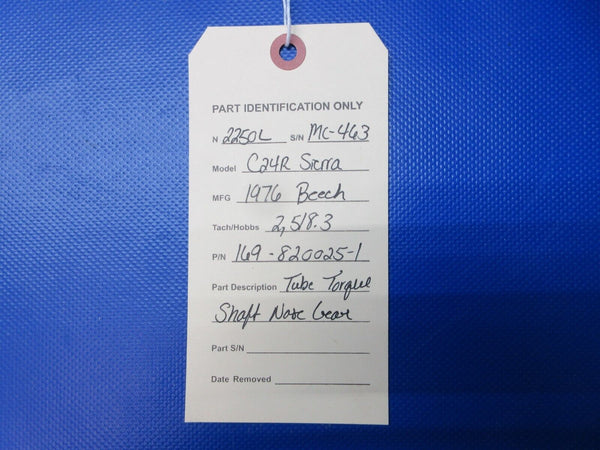 PART IDENTIFICATION ONLY
N 2250L S/N MC-463
Model C24R Sierra
MFG 1976 Beech
Tach/Hobbs 2,518.3
P/N 169-820025-1
Part Description Tube Torque
Shaft Nose Gear
Part S/N
Date Removed